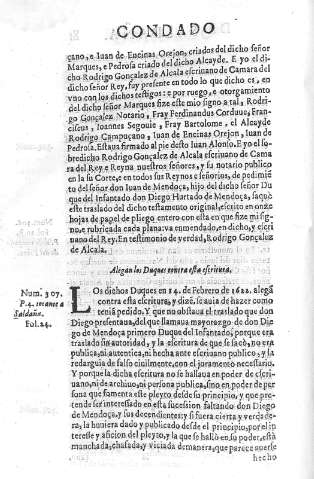 CONDADO
çano, e Iuan de Encinas Orejon, criados del dicho señor
Marques, e Pedrosa criado del dicho Alcayde. E yo el di
cho Rodrigo Gonçalez de Alcala escriuano de Camara del
dicho señor Rey, fuy presente en todo lo que dicho es, en
vno con los dichos testigos: e por ruego, e otorgamiento
del dicho señor Marques fize este mio signo a tal, Rodri-
go Gonçalez Notario, Fray Ferdinandus Cordue, Fran-
ciscus, Ioannes Segouie, Fray Bartolome, el Alcayde
Rodrigo Campuçano, Iuan de Encinas Orejon, Iuan de
Pedrosa. Estaua firmado al pie desto Iuan Alonso. E yo el so
bredicho Rodrigo Gonçalez de Alcala escriuano de Cama
ra del Rey e Reyna nuestros señores, y su notario publico
en la su Corte, e en todos sus Reynos e señorios, de pedimiẽ
to del señor don Iuan de Mendoça, hijo del dicho señor Du
que del Infantado don Diego Hurtado de Mendoça, saquè
este traslado del dicho testamento original, escrito en onze
hojas de papel de pliego entero con esta en que fize mi sig-
no, e rubricada cada plana: va enmendado, en dicho, y escri
uano del Rey. En testimonio de verdad, Rodrigo Gonçalez
de Alcala.
Alegan los Duques contra esta escritura.
Num. 307.
P.4. memorial
Saldaña.
Fol.24.
LOs dichos Duques en 14. de Febrero de 1622. alegã
contra esta escritura, y dizẽ, se auia de hazer como
tenià pedido. Y que no obstaua el traslado que don
Diego presentaua, del que llamaua mayorazgo de don Die
go de Mendoça primero Duque del Infantado, porque era
traslado sin autoridad, y la escritura de que se sacò, no era
publica, ni autentica, ni hecha ante escriuano publico, y la
redarguia de falso ciuilmente, con el joramento necessario.
Y porque la dicha escritura no se hallaua en poder de escri-
uano, ni de archiuo, ni persona publica, sino en poder de per
sona que fomenta este pleyto desde su principio, y que pre-
tende ser interessado en esta sucession faltando don Diego
de Mendoça, y sus decendientes: y si fuera cierta y verda-
ra, la huuiera dado y publicado desde el principio, por el in
teresse y aficion del pleyto, y la que se hallò en su poder, está
manchada, chafada, y viciada de manera, que parece auerse
hecho